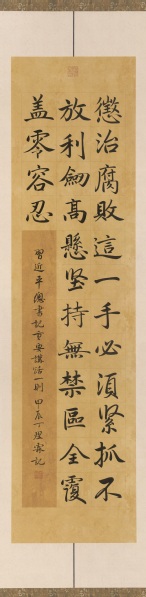 懲治腐敗這一手必須緊抓不
放利劍髙懸坚持無禁區全覆
盖零容忍
習近平總書記重要講話一則 甲辰丁理霖記